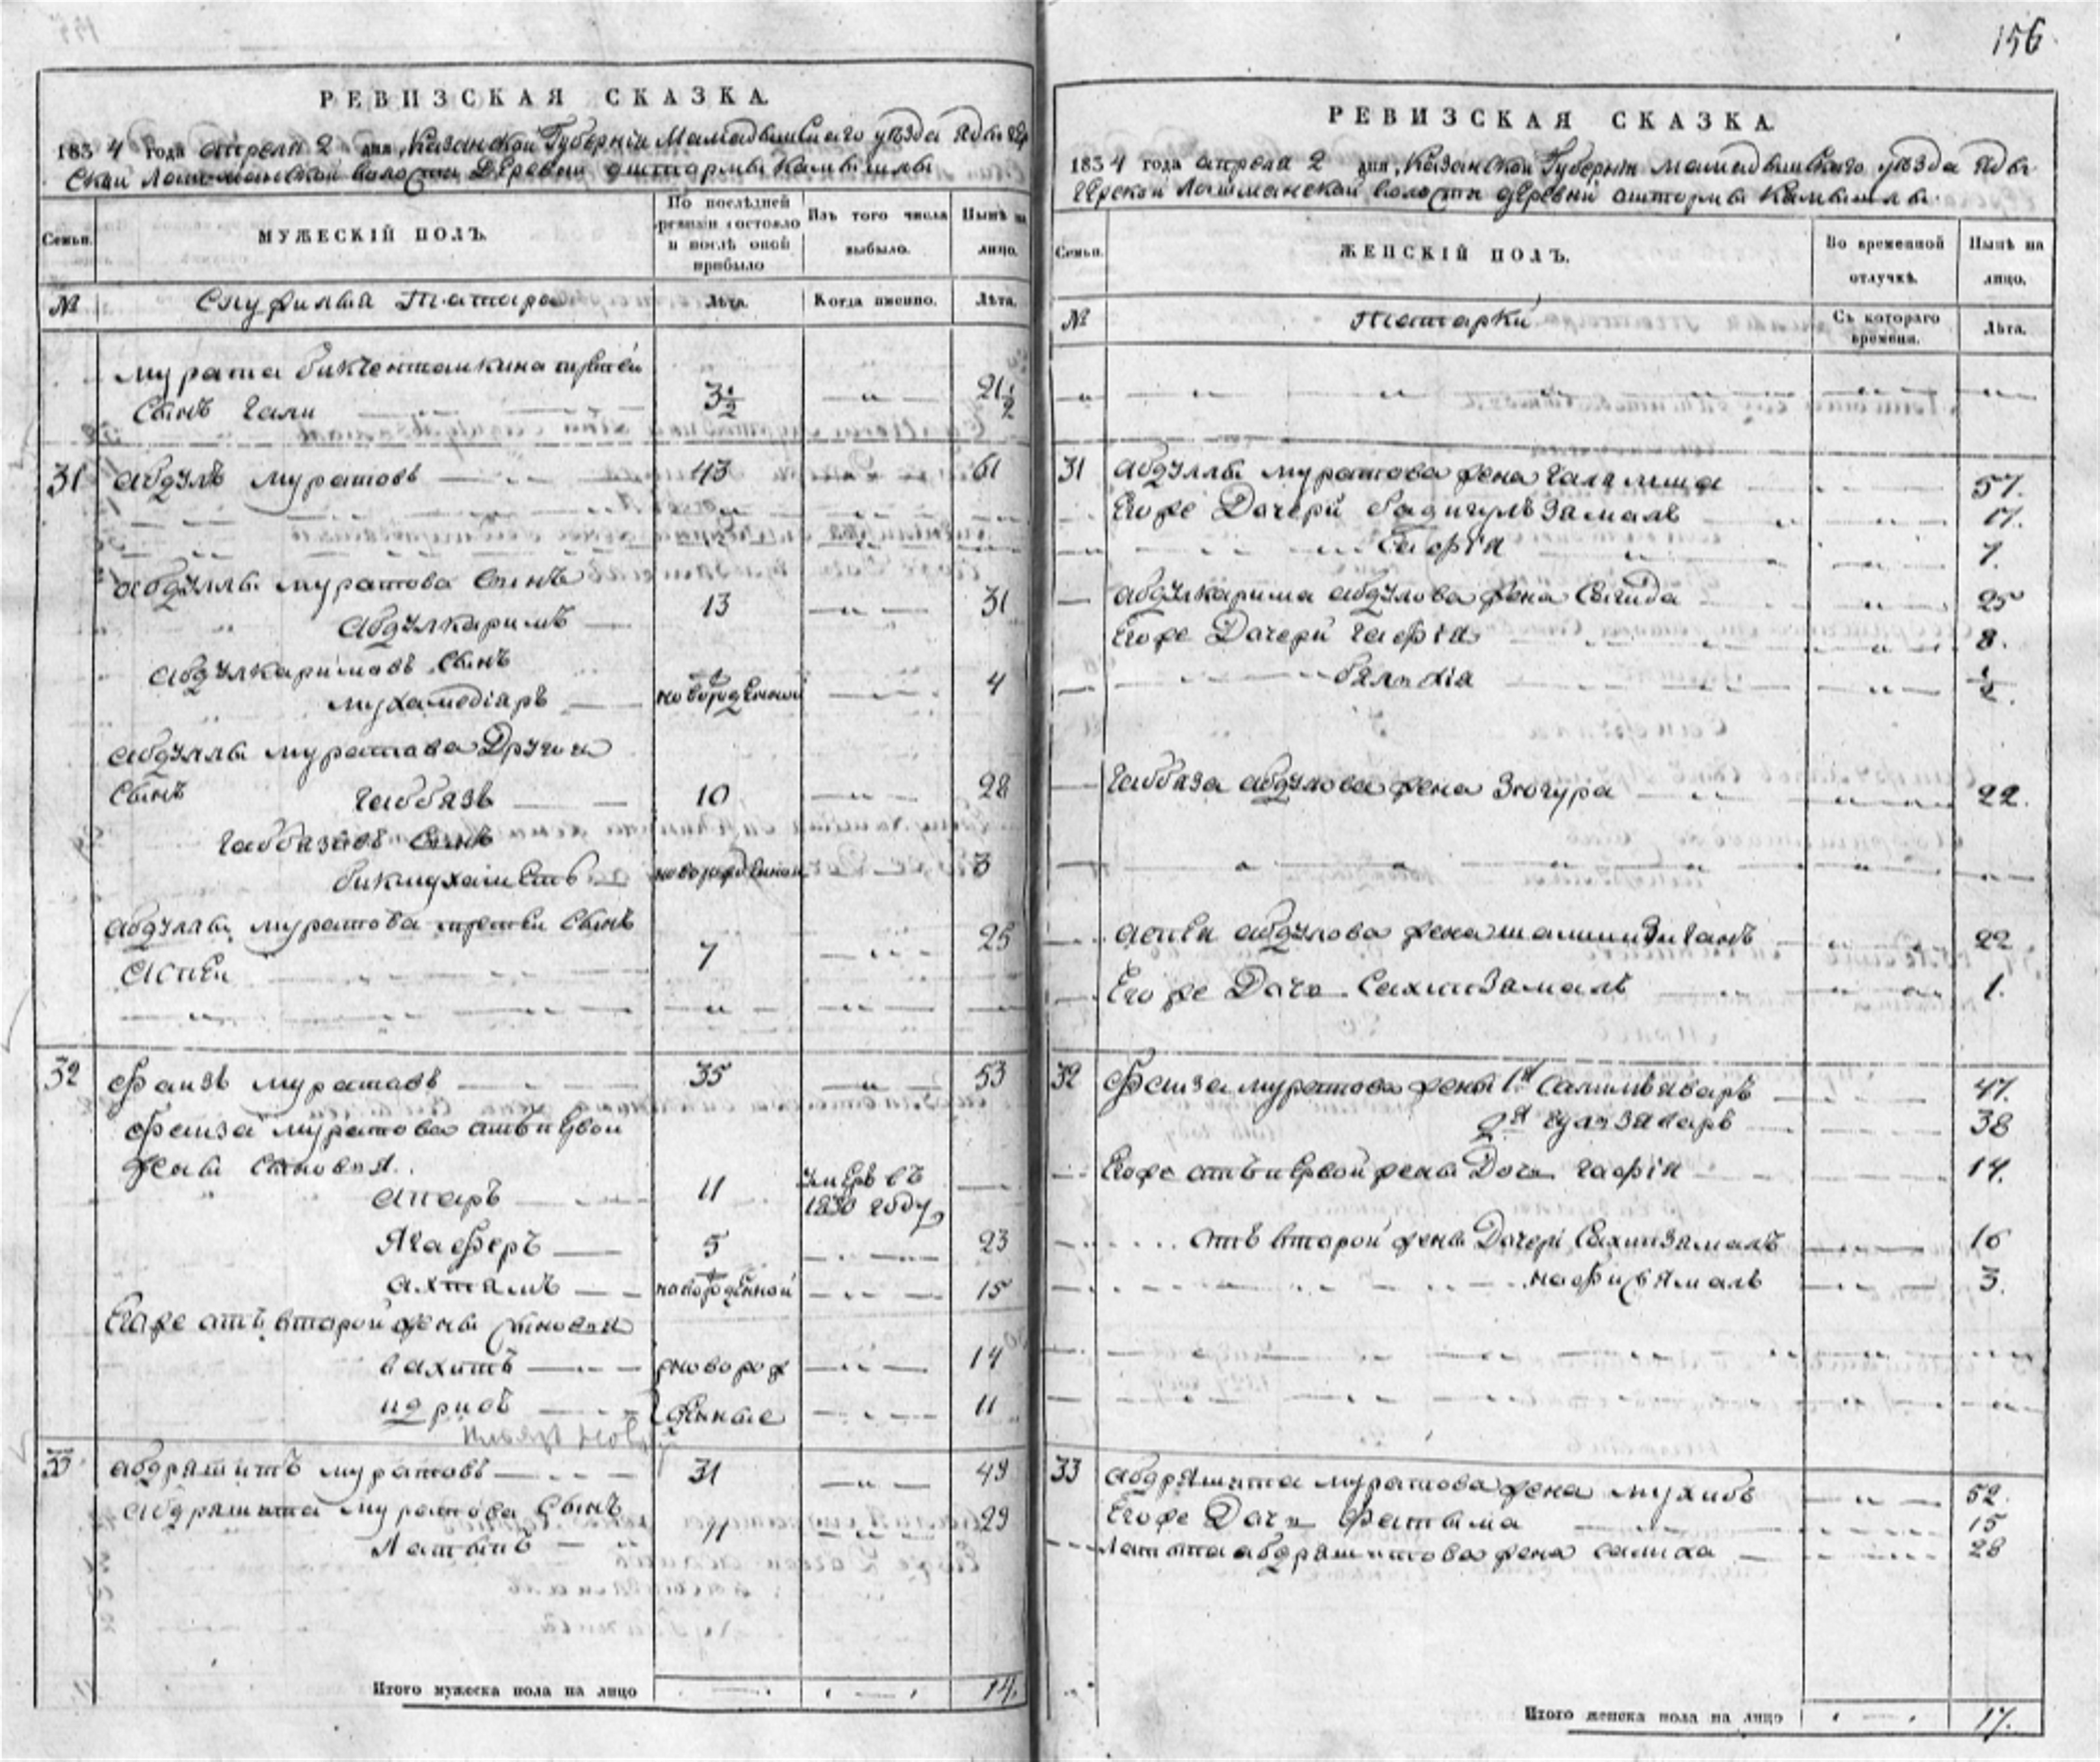 156
РЕВИЗСКАЯ СКАЗКА
1834 года апреля 2 дня, Казанской Губернiи Мамадышскаго уѣзда
ской Лашманской волости Деревни Каmышлы
Семьи.
МУЖЕСКIЙ ПОЛЪ.
По послѣдней ревизiи состояло и послѣ оной прибыло
Изъ того числа выбыло.
Нынѣ на лицо.
№
Служилыя Татара
Лѣта.
Когда именно.
Лѣта.
Мурата Бикчентаикина третей
сынъ Гали 3 1/2 21 1/2
31 Абдулъ Муратовъ 43 61
Абдуллы Муратова сынъ
Абдулкаримъ 13 31
Абдулкаримовъ сынъ
Мухамедiяръ новорожденной 4
Абдуллы Муратова Другои
сынъ Габбязъ 10 28
Габбязовъ сынъ
Бикмухаметъ новорожденной 3
Абдуллы Муратова третеи сынъ
7 25
32 Фаизъ Муратовъ 35 53
Фаиза Муратова отъ первои
жены сыновья
Апаръ 11 умеръ въ 1830 году
Ягаферъ 5 23
Ахтямъ новорожденной 15
Егоже отъ второй жены сыновья
Вахитъ новорож 14
Идрисъ денные 11
33 Абдряшитъ Муратовъ 31 49
Абдряшита Муратова сынъ
Латыпъ 11 29
Итого мужеска пола на лицо 14.
РЕВИЗСКАЯ СКАЗКА
1834 года апреля 2 дня, Казанской Губернiи Мамадышскаго уѣзда Яды
герской Лашманской волости деревни Аштормы Камышлы
Семьи.
ЖЕНСКIЙ ПОЛЪ.
Во временной отлучкѣ.
Нынѣ на лицо.
№
Татарки
Съ котораго времени.
Лѣта.
31 Абдуллы Муратова жена 57.
Егоже Дочери Бадигулъзамалъ 17.
7.
Абдулкарима Абдулова жена Сагида 25
Егоже Дочери Гафiя 8.
1/2.
Габбяза Абдулова жена Зюгура 22.
Абдулова жена 22
Егоже Дочь Сахипзамалъ 1.
32 Фаиза Муратова жены 1я 47.
2я 38
Егоже отъ первой жены Дочь Гафiя 14.
отъ второй жены Дочери Сахипзямалъ 16
3.
33 Абдряшита Муратова жена Мухибъ 52.
Егоже Дочь Фатыма 15
Латыпа Абдряшитова жена Салиха 28
Итого женска пола на лицо 17.